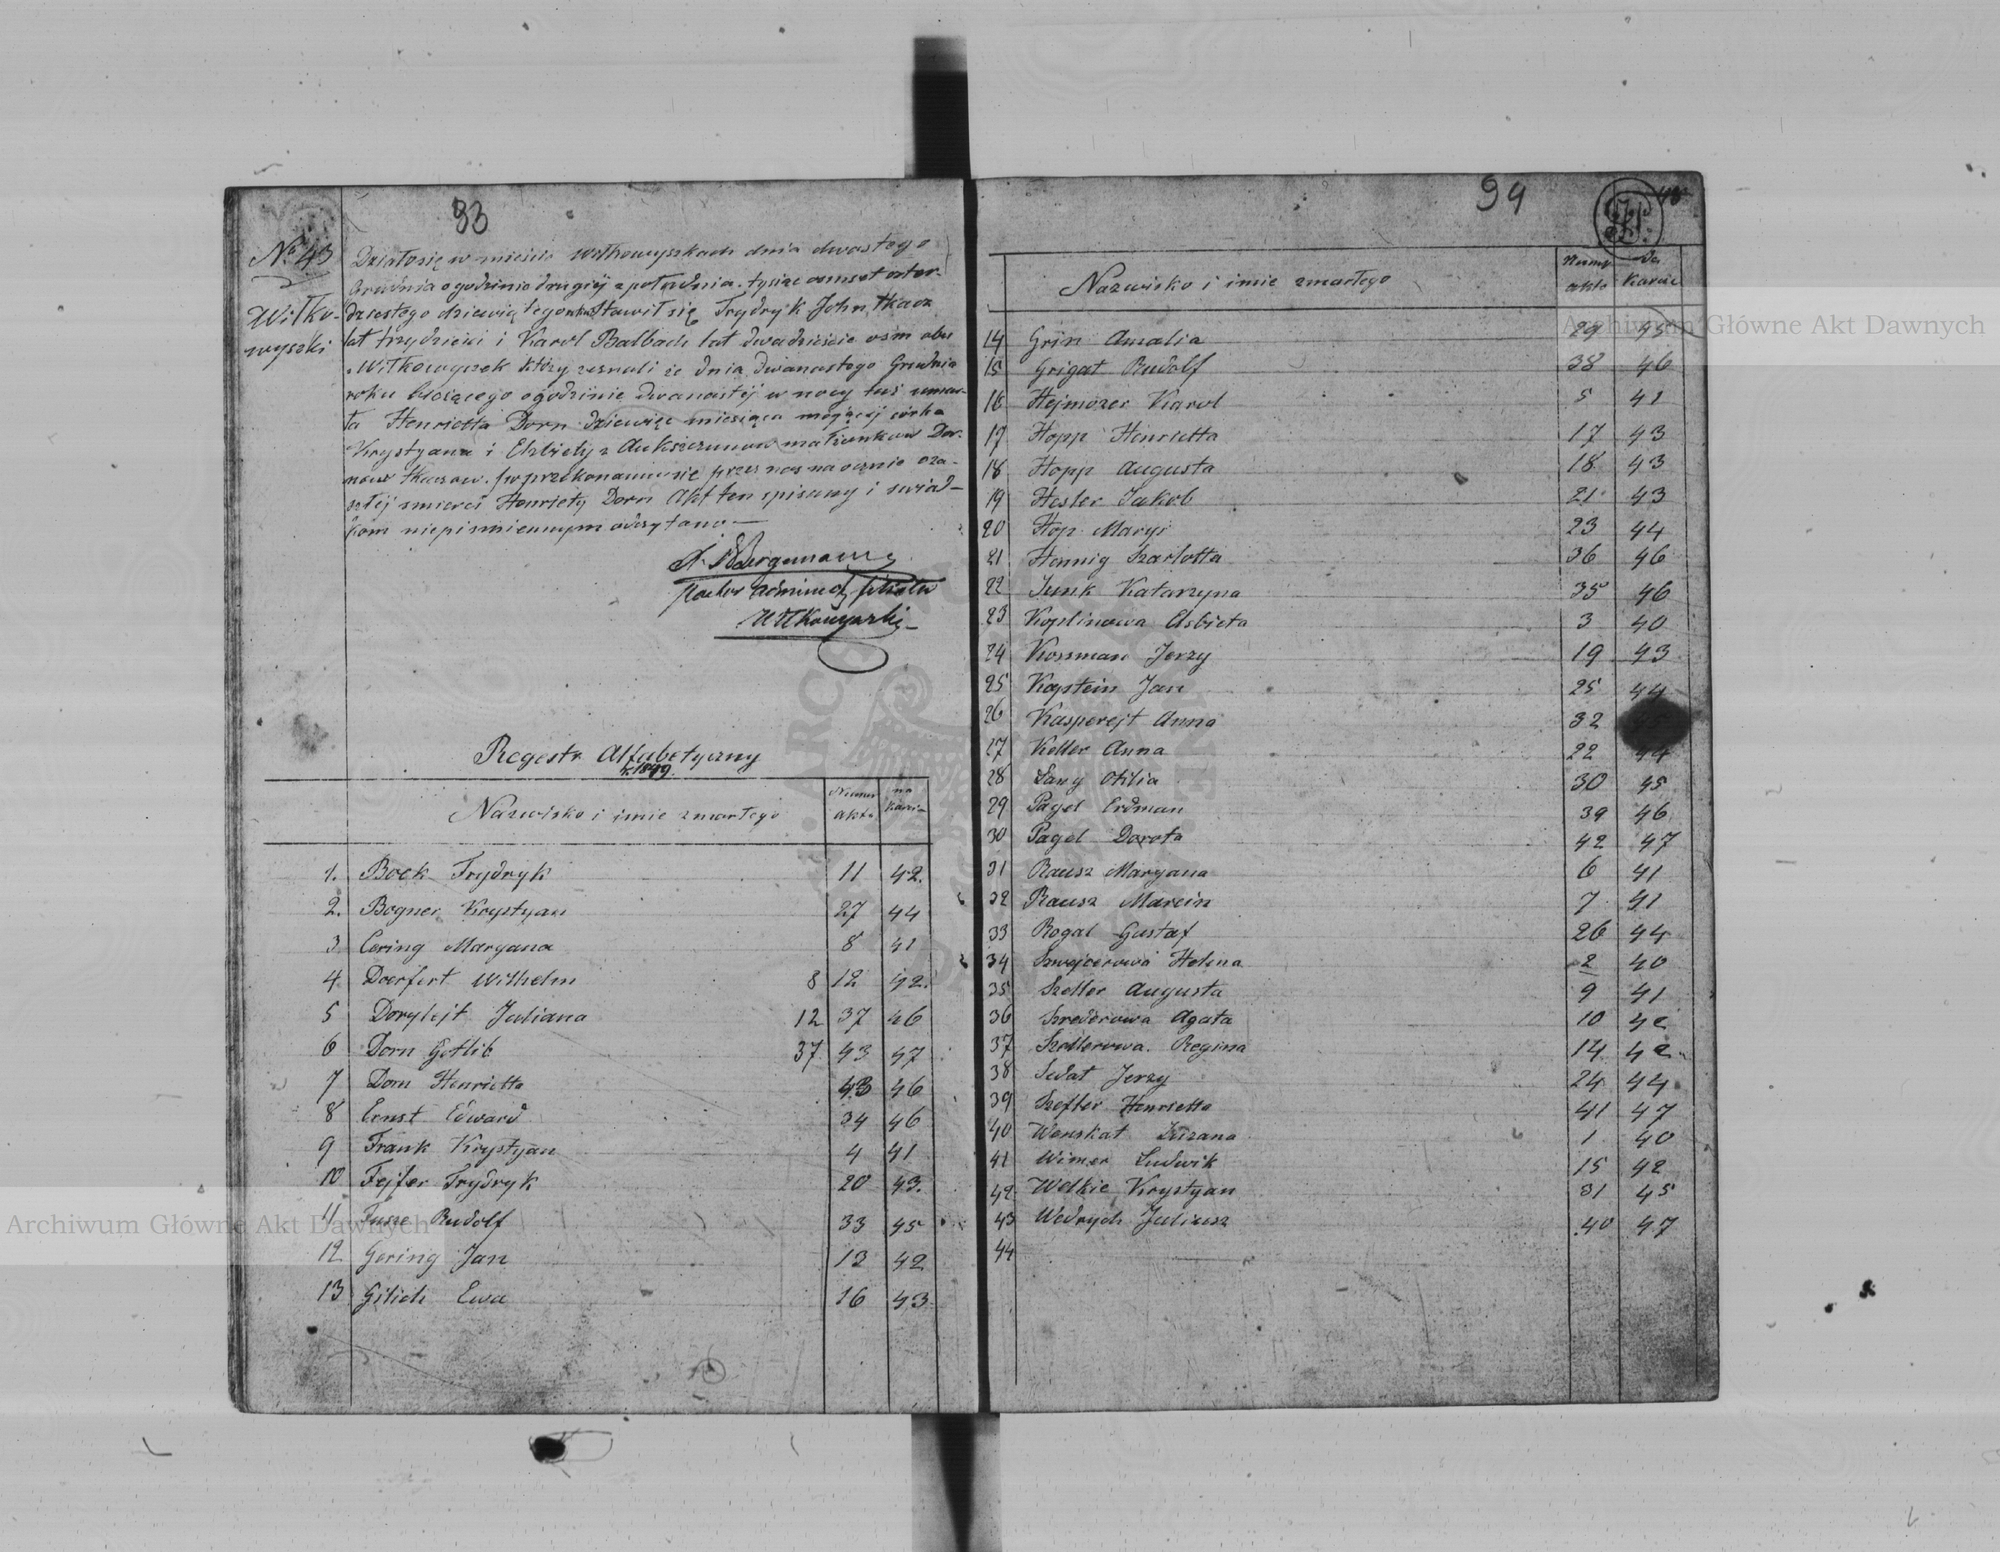 93
No 43
Wiłko-
wyszki
Działo się w mieście Wiłkowyszkach dnia dwustego
Grudnia o godzinie drugiej z południa tysiąc osmset czter-
dziestego dziewiątego roku Stawił się Frydryk John tkacz
lat trzydzieści i Karol Balbach lat dwadzieście osm oba
z Wiłkowyszek którzy zeznali że dnia dwunastego Grudnia
roku bieżącego o godzinie dwunastej w nocy tuż umar-
ła Henrietta Dorn dziewięć miesięca mającej córka
Krystyana i Elżbiety z małżonków Dor-
now tkaczow. po przekonaniu się przez nas na ocznie o za-
szłej smierci Henriety Dorn Akt ten spisany i swiad-
kom niepismiennym odczytano —
Bergemann
pastor filialu
Wiłkowyszki
Regestr Alfabetyczny
r. 1849.
Nazwisko i imie zmarłego Numer aktu na karcie
1. Bock Frydryk 11 42.
2. Bogner Krystyan 27 44
3 Cering Maryana 8 41
4 Doerfert Wilhelm 8 12 42.
5 Dorylejt Juliana 12 37 46
6 Dorn Gotlib 37 43 47
7 Dorn Henrietta 43 46
8 Ernst Edward 34 46
9 Frank Krystyan 4 41
10 Fejfer Frydryk 20 43.
11 Fusze Rudolf 33 45
12 Gering Jan 13 42
13 Gilich Ewa 16 43
94
Nazwisko i imie zmarłego Numer aktu Na Karcie
14 Grin Amalia 29 45
15 Grigat Rudolf 38 46
16 Hejmozer Karol 5 41
17 Hopp Henrietta 17 43
18 Hopp Augusta 18 43
19 Hesler Jakob 21 43
20 Hop Maryi 23 44
21 Hennig Szarlotta 36 46
22 Junk Katarzyna 35 46
23 Koplinowa Elsbieta 3 40
24 Kossman Jerzy 19 43
25 Kapstein Jan 25 44
26 Kasperejt Anna 32 45
27 Keller Anna 22 44
28 Lawy Otilia 30 45
29 Pagel Erdman 39 46
30 Pagel Dorota 42 47
31 Rausz Maryana 6 41
32 Rausz Marcin 7 41
33 Rogal Gustaf 26 44
34 Szwejcerowa Helena 2 40
35 Szeller Augusta 9 41
36 Szrederowa Agata 10 42
37 Szellerowa Regina 14 42
38 Sudat Jerzy 24 44
39 Szefler Henrietta 41 47
40 Wenskat Zuzana 1 40
41 Wimer Ludwik 15 42
42 Welkie Krystyan 31 45
43 Wedrych Juliusz 40 47
44
Archiwum Główne Akt Dawnych
Archiwum Główne Akt Dawnych